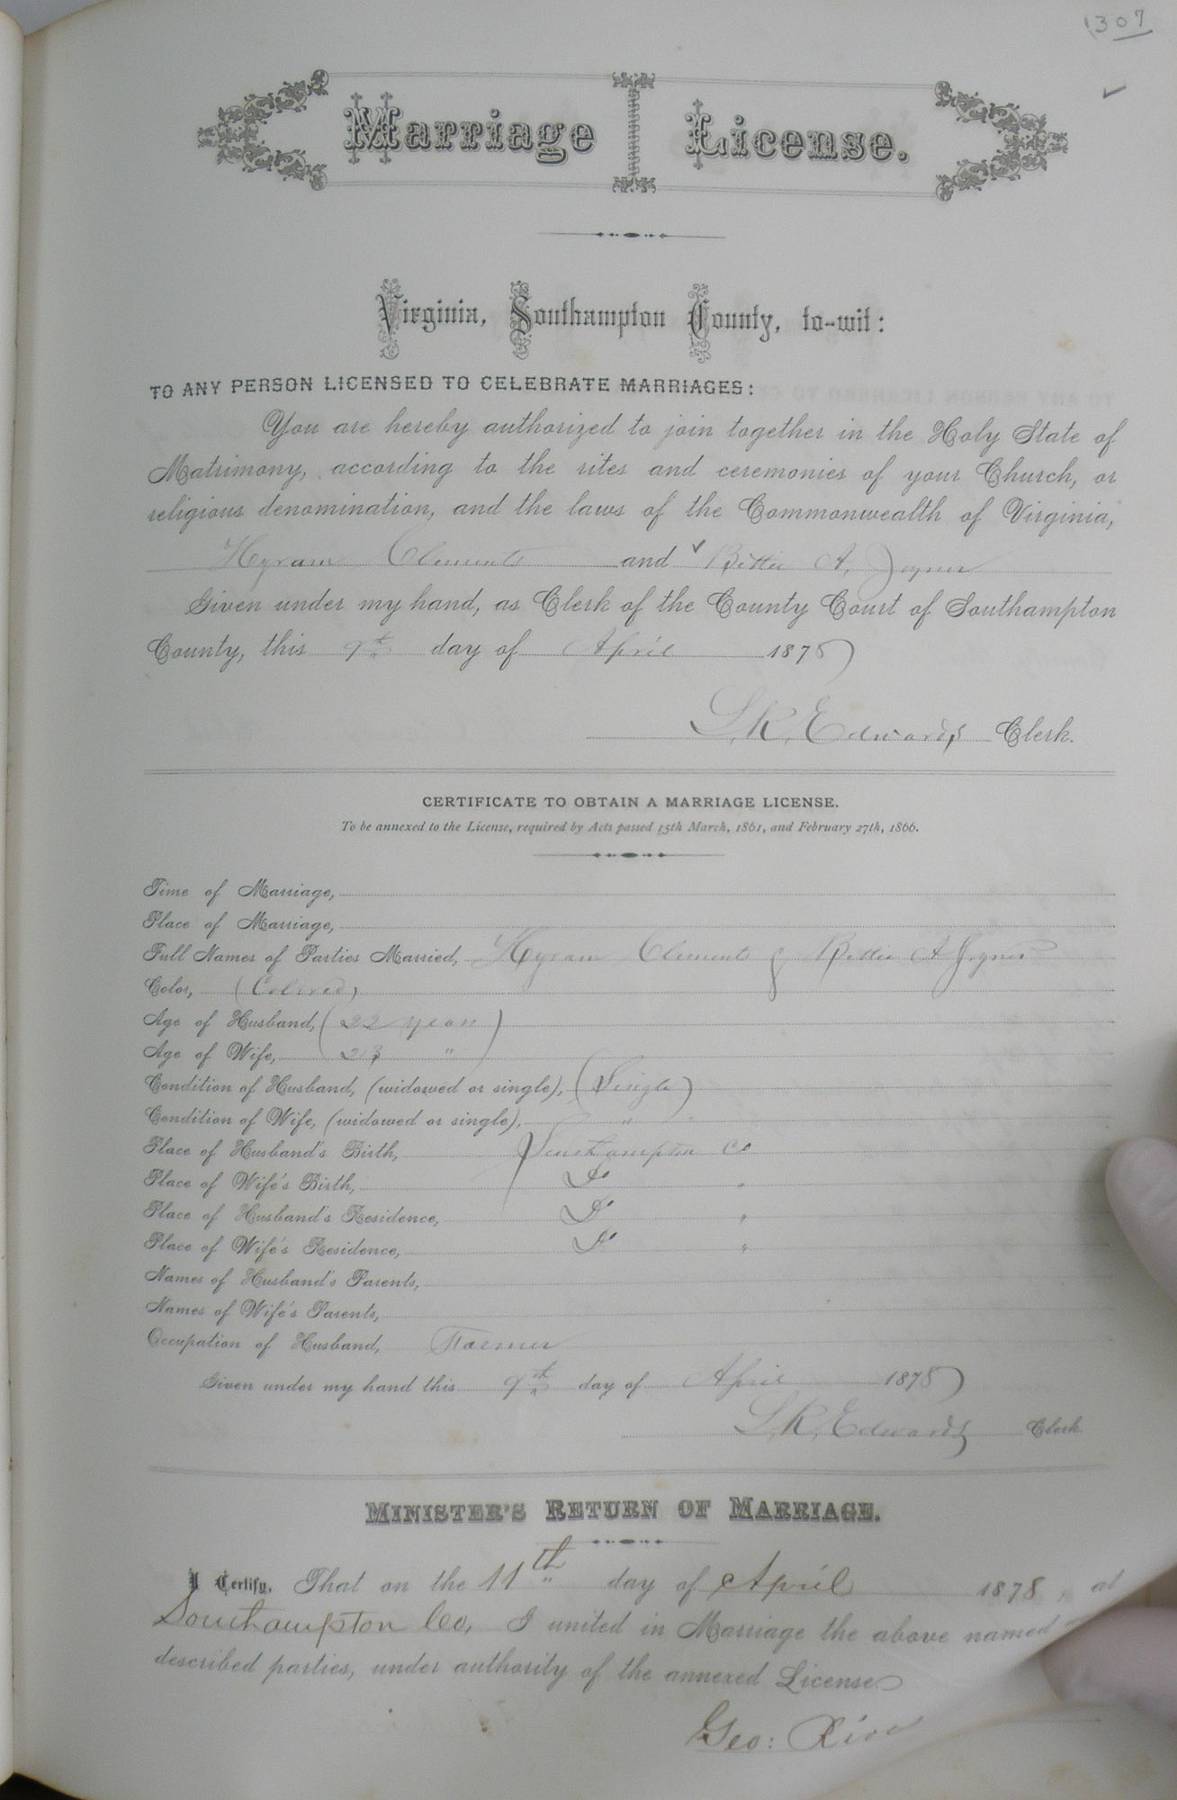 307
Marriage License.
Virginia, Southampton County, to-wit:
TO ANY PERSON LICENSED TO CELEBRATE MARRIAGES:
You are hereby authorized to join together in the Holy State of
Matrimony, according to the rites and ceremonies of your Church, or
religious denomination, and the laws of the Commonwealth of Virginia,
Hyram Clements and Bettie A. Joyner
Given under my hand, as Clerk of the County Court of Southampton
County, this 9th day of April 1878
L. R. Edwards Clerk.
CERTIFICATE TO OBTAIN A MARRIAGE LICENSE.
To be annexed to the License, required by Acts passed 15th March, 1861, and February 27th, 1866.
Time of Marriage,
Place of Marriage,
Full Names of Parties Married, Hyram Clements & Bettie A Joyner
Color, (Colored)
Age of Husband, (22 years)
Age of Wife, "
Condition of Husband, (widowed or single), (Single)
Condition of Wife, (widowed or single), "
Place of Husband's Birth, Southampton Co
Place of Wife's Birth, Do "
Place of Husband's Residence, Do "
Place of Wife's Residence, Do "
Names of Husband's Parents,
Names of Wife's Parents,
Occupation of Husband, Farmer
Given under my hand this 9th day of April 1878
L. R. Edwards Clerk.
MINISTER'S RETURN OF MARRIAGE.
I Certify, That on the 11th day of April 1878, at
Southampton Co, I united in Marriage the above named
described parties, under authority of the annexed License
Geo: